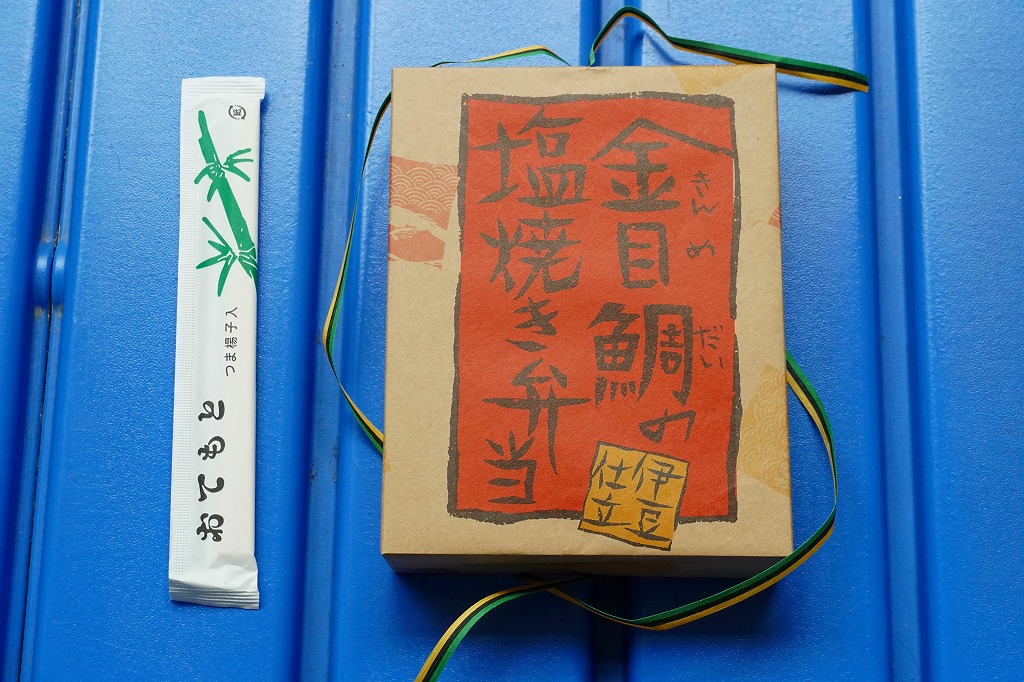 金目鯛の
きんめだい
塩焼き弁当
伊豆
仕立
おてもと
つま楊子入
紙